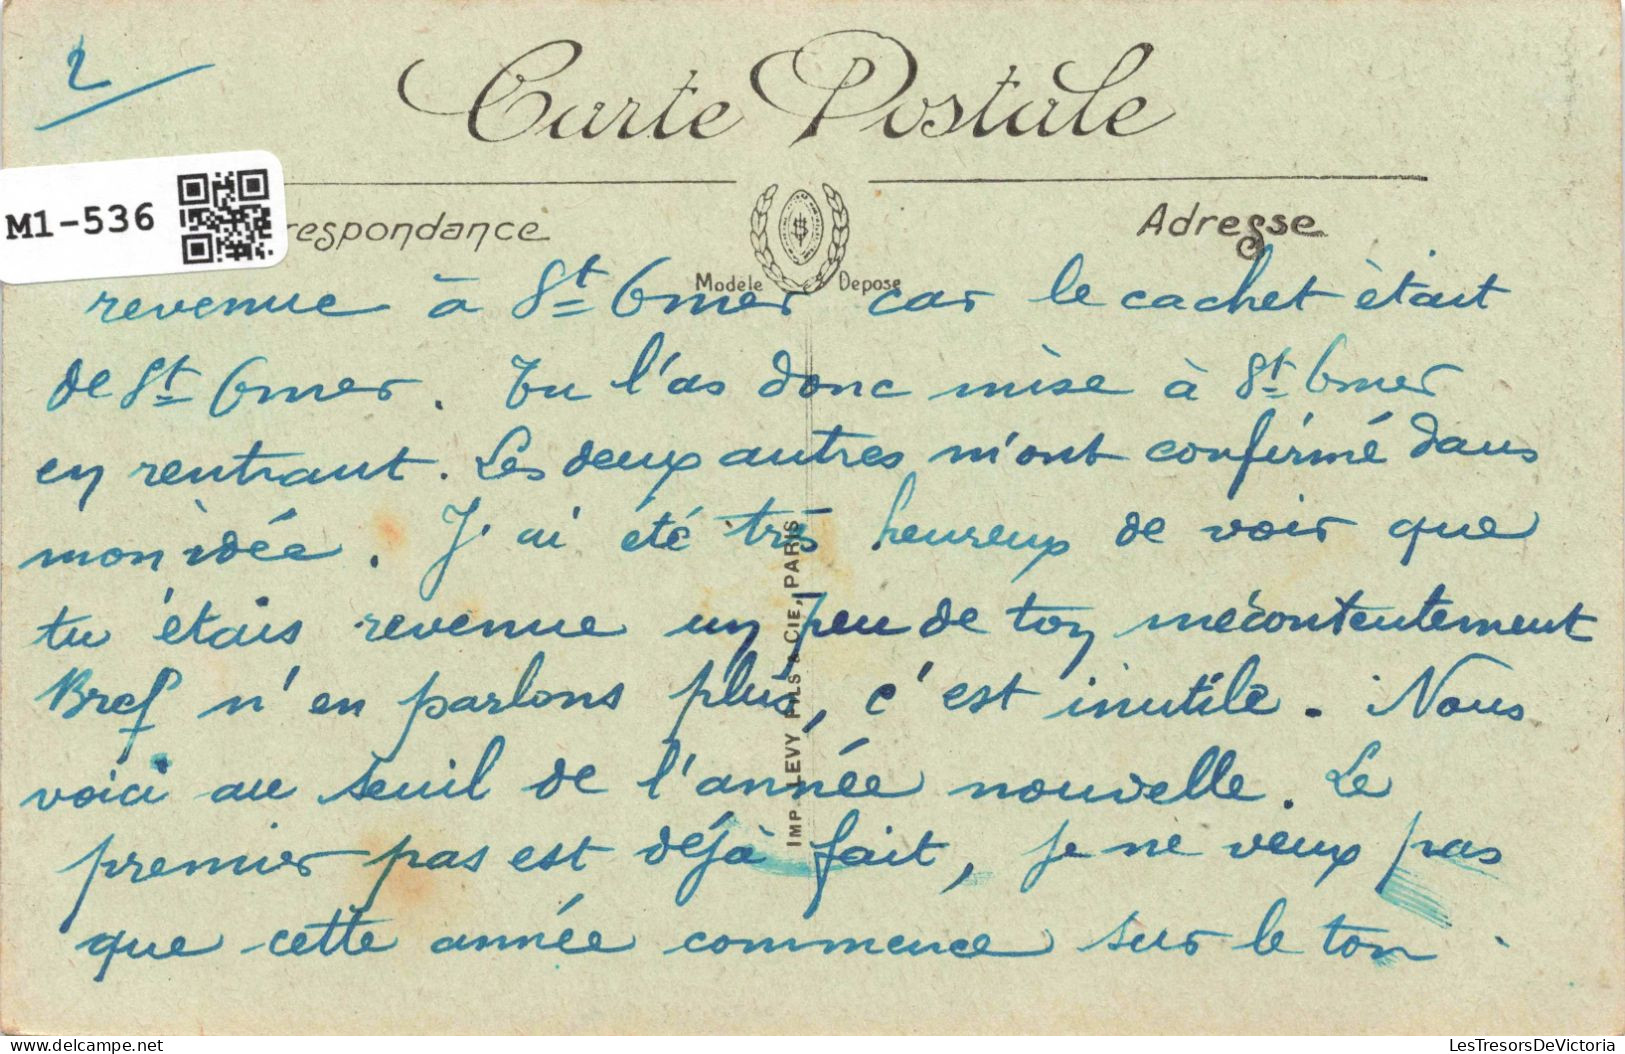 2
Carte Postale
M1-536
respondance
Adresse
Modèle Déposé
revenue à St Omer car le cachet était
de St Omer. Tu l'as donc mise à St Omer
en rentrant. Les deux autres m'ont confirmé dans
mon idée. J'ai été très heureux de voir que
tu étais revenue un peu de ton mécontentement
Bref n'en parlons plus, c'est inutile. Nous
voici au seuil de l'année nouvelle. Le
premier pas est déjà fait, je ne veux pas
que cette année commence sur le ton
IMP. LEVY FILS & CIE, PARIS
delcampe.net
LesTresorsDeVictoria